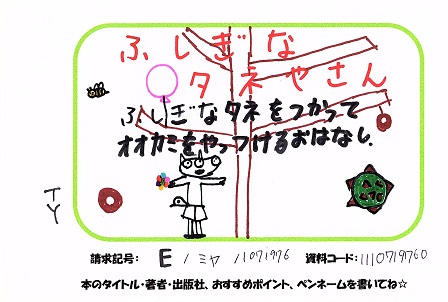 ふしぎな
タネやさん
ふしぎなタネをつかって
オオカミをやっつけるおはなし。
TY
請求記号： E / ミヤ / 1071976 資料コード：1110719760
本のタイトル・著者・出版社、おすすめポイント、ペンネームを書いてね☆